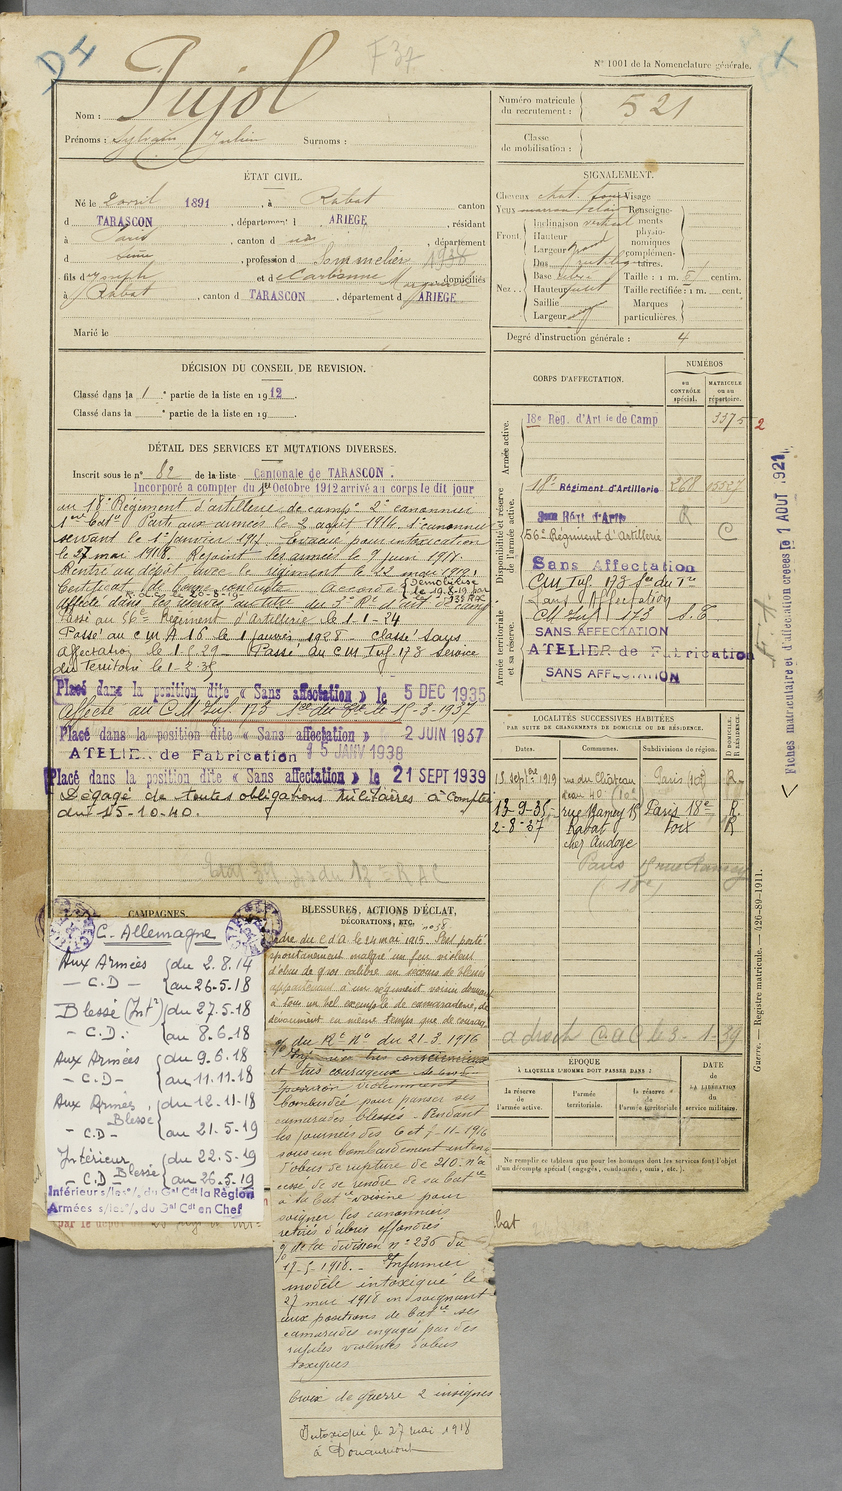 D4
F 37
X
N° 1001 de la Nomenclature générale.
Nom : Pujol
Prénoms : Sylvain Julien Surnoms :
ÉTAT CIVIL.
Né le 2 avril 1891, à Rabat canton
d TARASCON, département d ARIEGE, résidant
à Paris, canton d, département
d Seine, profession de Sommelier 1938
fils de Joseph et de Carbonne Marguerite domiciliés
à Rabat, canton d TARASCON, département d ARIEGE
Marié le
DÉCISION DU CONSEIL DE REVISION.
Classé dans la 1e partie de la liste en 1912.
Classé dans la e partie de la liste en 19 .
DÉTAIL DES SERVICES ET MUTATIONS DIVERSES.
Inscrit sous le n° 82 de la liste Cantonale de TARASCON.
Incorporé à compter du 1er Octobre 1912 arrivé au corps le dit jour
au 18e Régiment d'artillerie de campe 2e canonnier
Parti aux armées le 2 août 1914. 1e canonnier
servant le 1er janvier 1917. Évacué pour intoxication
le 27 mai 1918. Rejoint les armées le 9 juin 1918.
Rentré au dépôt avec le régiment le 22 mai 1919.
Certificat de bonne conduite accordé
Démobilisé
le 19.8.19 par
affecté dans les réserves au titre du 3e Rt d'art de camp
Passé au 56e Régiment d'Artillerie le 1.1-24
Passé au C M A 16 le 1 janvier 1928. Classé sans
affectation le 1.5.29 Passé au CM Inf. 173 service
du Territoire le 1-2-35
Placé dans la position dite « Sans affectation » le 5 DEC 1935
Affecté au C.M Inf. 173 Sce du Tre le 15-3-1937
Placé dans la position dite « Sans affectation » le 2 JUIN 1937
ATELIER de Fabrication 15 JANV 1938
Placé dans la position dite « Sans affectation » le 21 SEPT 1939
Dégagé de toutes obligations militaires à Compter
du 15-10-40.
CAMPAGNES.
C. Allemagne
Aux Armées du 2.8.14
— C.D — au 26.5.18
Blessé (Int) du 27.5.18
— C.D. au 8.6.18
Aux Armées du 9.6.18
— C.D — au 11.11.18
Aux Armées du 12-11-18
Blessé
— C.D — au 21.5-19
Intérieur du 22.5-19
— C.D Blessé au 26.5.19
Intérieur s/les°/, du Gal Cdt la Région
Armées s/les°/, du Gal Cdt en Chef
BLESSURES, ACTIONS D'ÉCLAT,
DÉCORATIONS, ETC.
Ordre du C d'A le 24 mai 1915. S'est porté
spontanément malgré un feu violent
d'obus de gros calibre au secours de blessés
appartenant à un régiment voisin donnant
à tous un bel exemple de camaraderie, de
dévouement en même temps que de courage
du Rt N° du 21.3.1916
très consciencieux
et très courageux
position violemment
bombardée pour panser ses
camarades blessés. Pendant
les journées des 6 et 7-11-1916
sous un bombardement intense
d'obus de rupture de 210. n'a
cessé de se rendre de sa batie
à la batie voisine pour
soigner les canonniers
retirés d'abris effondrés
de la division n° 236 du
17-5-1918.- Infirmier
modèle intoxiqué le
27 mai 1918 en soignant
aux positions de batie ses
camarades engagés par des
rafales violentes d'obus
toxiques
Croix de guerre 2 insignes
Intoxiqué le 27 mai 1918
à Douaumont
Numéro matricule du recrutement : 521
Classe de mobilisation :
SIGNALEMENT.
Cheveux chat. foncé Visage
Yeux marron clair
Front Inclinaison vertical
Hauteur
Largeur grand
Nez Dos rectiligne
Base
Hauteur petit
Saillie
Largeur
Renseignements physionomiques complémentaires.
Taille : 1 m. centim.
Taille rectifiée : 1 m. cent.
Marques particulières.
Degré d'instruction générale : 4
CORPS D'AFFECTATION.
NUMÉROS
au CONTRÔLE spécial.
MATRICULE ou au répertoire.
Armée active.
18e Rég. d'Artie de Camp 3375
2
Disponibilité et réserve de l'armée active.
18e Régiment d'Artillerie 268 15527
R
56e Régiment d'Artillerie C
Sans Affectation
CM Inf. 173 Sce du Tre
Sans Affectation
CM Inf 173 S.T.
Armée territoriale et sa réserve.
SANS AFFECTATION
ATELIER de Fabrication
SANS AFFECTATION
LOCALITÉS SUCCESSIVES HABITÉES
PAR SUITE DE CHANGEMENTS DE DOMICILE OU DE RÉSIDENCE.
Dates. Communes. Subdivisions de région. D DOMICILE. R RÉSIDENCE.
15 septbre 1919 rue du Château d'eau 40 (10e) Paris (10e) R
13-9-35 rue Ramey 15 Paris 18e R.
2-8-37 Rabat Foix R
chez Audoye
Paris 15 rue Ramey
(18e)
a droit C. a C le 3-1-39
ÉPOQUE
À LAQUELLE L'HOMME DOIT PASSER DANS :
la réserve de l'armée active.
l'armée territoriale.
la réserve de l'armée territoriale
DATE de LA LIBÉRATION du service militaire.
Ne remplir ce tableau que pour les hommes dont les services font l'objet
d'un décompte spécial (engagés, condamnés, omis, etc.).
Fiches matriculaire et d'affectation créées le 1 AOUT 1921
Guerre. — Registre matricule. — 426-89-1911.